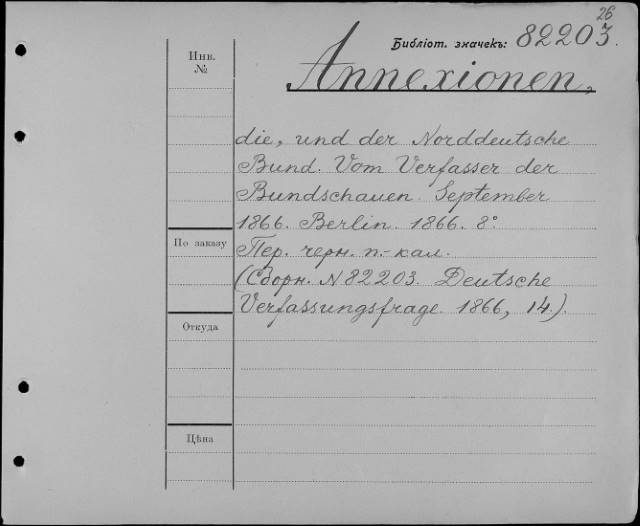 26
Библіот. значекъ: 82203.
Инв.
№
Annexionen,
die, und der Norddeutsche
Bund. Vom Verfasser der
Bundschauen. September
1866. Berlin. 1866. 8°
По заказу
Пер. черн. п.-кал.
(Сборн. N 82203. Deutsche
Verfassungsfrage. 1866, 14.).
Откуда
Цѣна